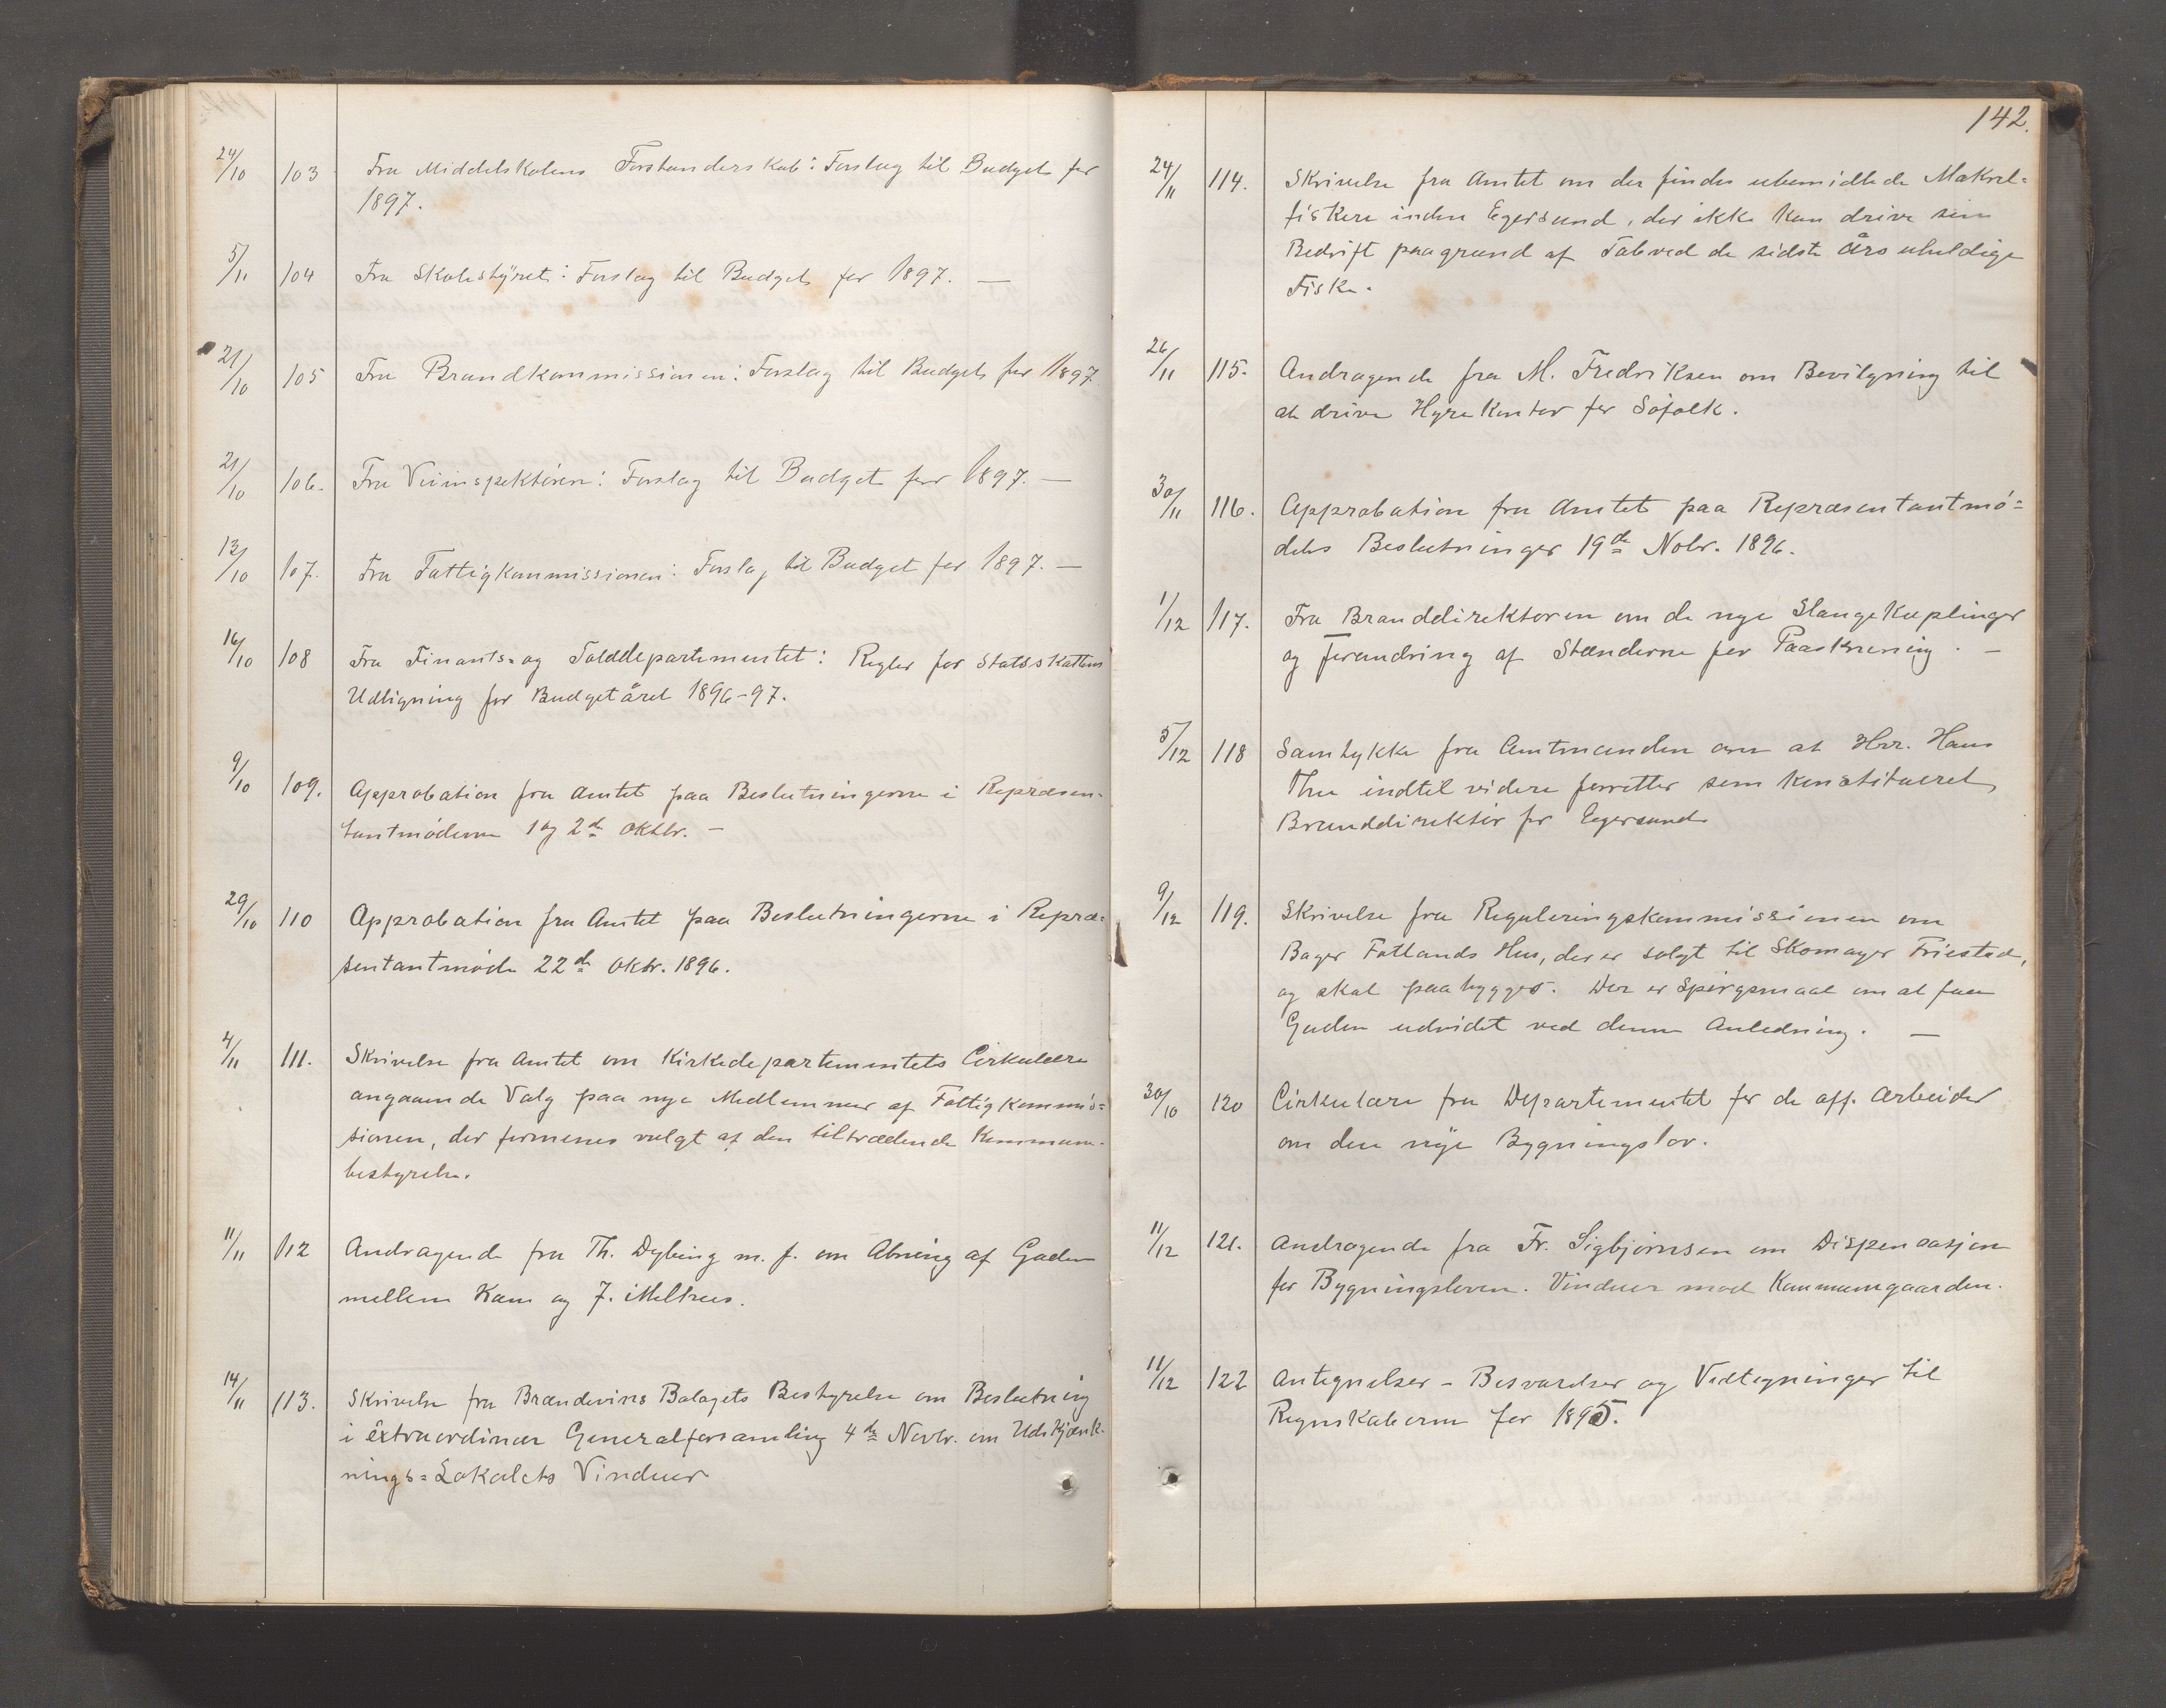 24/10 103 Fra Middelskolens Forstanderskab: Forslag til Budget for
1897.
5/11 104 Fra Skolestyret: Forslag til Budget for 1897. —
21/10 105 Fra Brandkommissionen: Forslag til Budget for 1897
21/10 106. Fra Veiinspektören: Forslag til Budget for 1897. —
13/10 107. Fra Fattigkommissionen: Forslag til Budget for 1897. —
16/10 108 Fra Finants- og Tolddepartementet: Regler for Statsskattens
Udligning for Budgetåret 1896-97.
9/10 109. Approbation fra Amtet paa Beslutningerne i Repræsen-
tantmöderne 1 og 2de Oktbr. —
29/10 110 Approbation fra Amtet paa Beslutningerne i Repræ-
sentantmöde 22de Oktr. 1896.
4/11 111. Skrivelse fra Amtet om Kirkedepartementets Cirkulære
angaaende Valg paa nye Medlemmer af Fattigkommis-
sionen, der formenes valgt af den tiltrædende Kommune-
bestyrelse.
11/11 112 Andragende fra Th. Dybing m. f. om Åbning af Gaden
mellem Kam og J. Meltvei.
14/11 113. Skrivelse fra Brændevins Bolagets Bestyrelse om Beslutning
i extraordinær Generalforsamling 4de Novbr. om Udskjænk-
nings-Lokalets Vinduer
142.
24/11 114. Skrivelse fra Amtet om der findes ubemidlede Makrel-
fiskere inden Egersund, der ikke kan drive sin
Bedrift paagrund af Tab ved de sidste Års uheldige
Fiske.
26/11 115. Andragende fra M. Fredriksen om Bevilgning til
at drive Hyrekontor for Söfolk.
30/11 116. Approbation fra Amtet paa Repræsentantmö-
dets Beslutninger 19de Nobr. 1896.
1/12 117. Fra Branddirektoren om de nye Slangekuplinger
og forandring af Stænderne for Paaskruning. —
5/12 118 Samtykke fra Amtmanden om at Hrr. Hans
Thu indtil videre forretter som konstitueret
Branddirektör for Egersund
9/12 119. Skrivelse fra Reguleringskommissionen om
Bager Fotlands Hus, der er solgt til Skomager Friestad,
og skal paabygges. Der er Spörgsmaal om at faa
Gaden udvidet ved denne Anledning. —
30/10 120 Cirkulære fra Departementet for de off. Arbeider
om den nye Bygningslov.
11/12 121. Andragende fra Fr. Sigbjörnsen om Dispensasjon
for Bygningsloven. Vinduer mod Kommunegaarden.
11/12 122 Antegnelser - Besvarelser og Vedtegninger til
Regnskaberne for 1895.